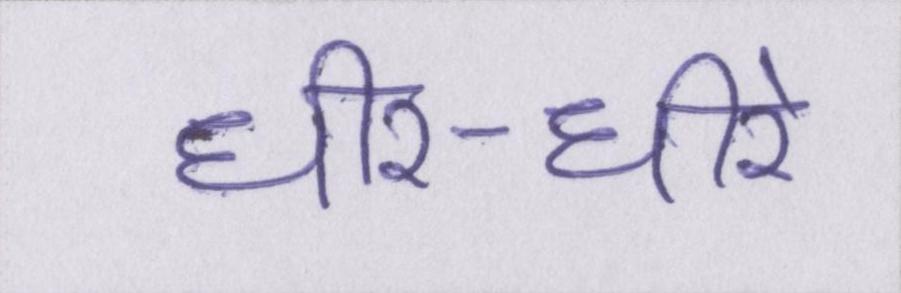 धीर-धीरे